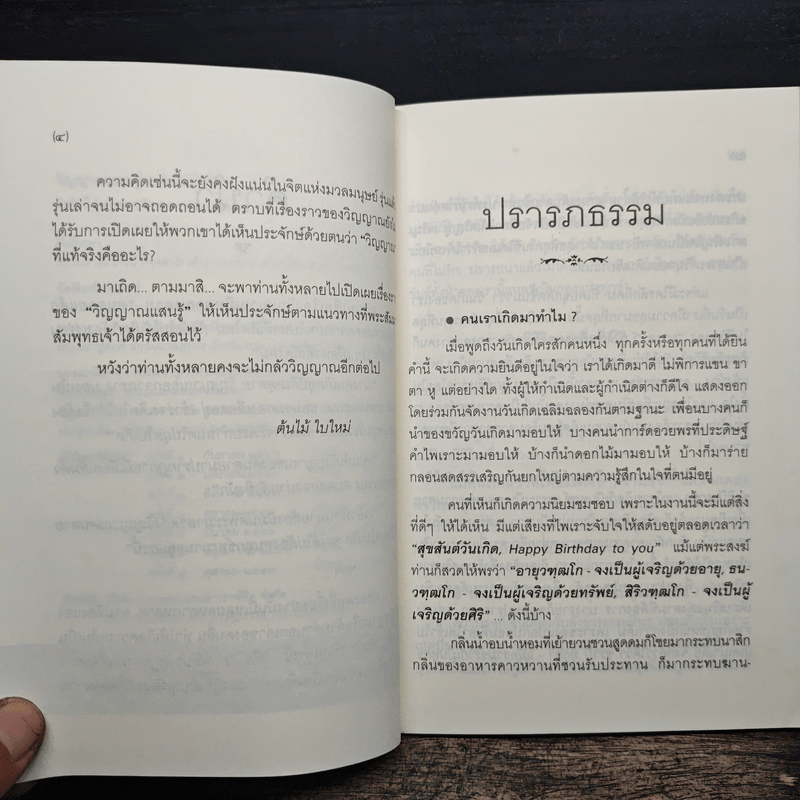 (๔)
ความคิดเช่นนี้จะยังคงฝังแน่นในจิตแห่งมวลมนุษย์ รุ่นแล้ว
รุ่นเล่าจนไม่อาจถอดถอนได้ ตราบที่เรื่องราวของวิญญาณยัง
ได้รับการเปิดเผยให้พวกเขาได้เห็นประจักษ์ด้วยตนว่า “วิญญาณ
ที่แท้จริงคืออะไร?
มาเถิด... ตามมาสิ... จะพาท่านทั้งหลายไปเปิดเผยเรื่อง
ของ “วิญญาณแสนรู้” ให้เห็นประจักษ์ตามแนวทางที่พระสัมมา
สัมพุทธเจ้าได้ตรัสสอนไว้
หวังว่าท่านทั้งหลายคงจะไม่กลัววิญญาณอีกต่อไป
ต้นไม้ ใบใหม่
ปรารภธรรม
● คนเราเกิดมาทำไม ?
เมื่อพูดถึงวันเกิดใครสักคนหนึ่ง ทุกครั้งหรือทุกคนที่ได้ยิน
คำนี้ จะเกิดความยินดีอยู่ในใจว่า เราได้เกิดมาดี ไม่พิการแขน ขา
ตา หู แต่อย่างใด ทั้งผู้ให้กำเนิดและผู้กำเนิดต่างก็ดีใจ แสดงออก
โดยร่วมกันจัดงานวันเกิดเฉลิมฉลองกันตามฐานะ เพื่อนบางคนก็
นำของขวัญวันเกิดมามอบให้ บางคนนำการ์ดอวยพรที่ประดิษฐ์
คำไพเราะมามอบให้ บ้างก็นำดอกไม้มามอบให้ บ้างก็มาร่าย
กลอนสดสรรเสริญกันยกใหญ่ตามความรู้สึกในใจที่ตนมีอยู่
คนที่เห็นก็เกิดความนิยมชมชอบ เพราะในงานนี้จะมีแต่สิ่ง
ที่ดีๆ ให้ได้เห็น มีแต่เสียงที่ไพเราะจับใจให้สดับอยู่ตลอดเวลาว่า
“สุขสันต์วันเกิด, Happy Birthday to you” แม้แต่พระสงฆ์
ท่านก็สวดให้พรว่า “อายุวฑฺฒโก - จงเป็นผู้เจริญด้วยอายุ, ธน-
วฑฺฒโก - จงเป็นผู้เจริญด้วยทรัพย์, สิริวฑฺฒโก - จงเป็นผู้
เจริญด้วยศิริ” ... ดังนี้บ้าง
กลิ่นน้ำอบน้ำหอมที่เย้ายวนชวนสูดดมก็โชยมากระทบนาสิก
กลิ่นของอาหารคาวหวานที่ชวนรับประทาน ก็มากระทบฆาน-